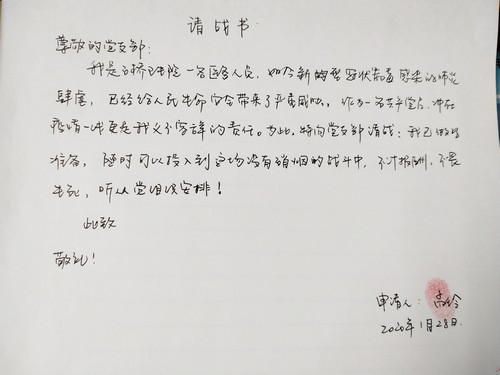 请战书
尊敬的党支部:
我是石桥卫生院一名医务人员,如今新的冠状病毒感染的肺炎
肆虐,已经给人民生命安全带来了严重威胁,作为一名共产党员,冲在
疫情一线更是我义不容辞的责任。为此,特向党支部请战:我已做好
准备,随时可以投入到这场没有硝烟的战斗中,不计报酬,不畏
生死,听从党组织安排!
此致
敬礼!
申请人:高玲
2020年1月28日.